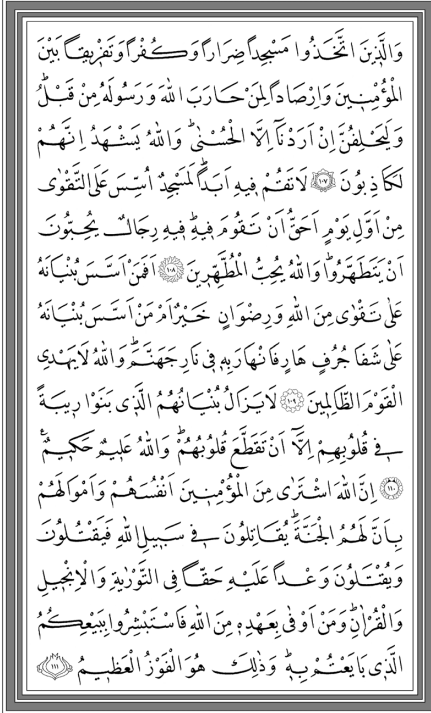 وَالَّذِينَ اتَّخَذُوا مَسْجِداً ضِرَاراً وَكُفْراً وَتَفْرِيقاً بَيْنَ
الْمُؤْمِنِينَ وَاِرْصَاداً لِمَنْ حَارَبَ اللّٰهَ وَرَسُولَهُ مِنْ قَبْلُۜ
وَلَيَحْلِفُنَّ اِنْ اَرَدْنَٓا اِلَّا الْحُسْنٰىۜ وَاللّٰهُ يَشْهَدُ اِنَّهُمْ
لَكَاذِبُونَ ﴿١٠٧﴾ لَا تَقُمْ فِيهِ اَبَداًۜ لَمَسْجِدٌ اُسِّسَ عَلَى التَّقْوٰى
مِنْ اَوَّلِ يَوْمٍ اَحَقُّ اَنْ تَقُومَ فِيهِۜ فِيهِ رِجَالٌ يُحِبُّونَ
اَنْ يَتَطَهَّرُواۜ وَاللّٰهُ يُحِبُّ الْمُطَّهِّرِينَ ﴿١٠٨﴾ اَفَمَنْ اَسَّسَ بُنْيَانَهُ
عَلٰى تَقْوٰى مِنَ اللّٰهِ وَرِضْوَانٍ خَيْرٌ اَمْ مَنْ اَسَّسَ بُنْيَانَهُ
عَلٰى شَفَا جُرُفٍ هَارٍ فَانْهَارَ بِهِ فِي نَارِ جَهَنَّمَۜ وَاللّٰهُ لَا يَهْدِي
الْقَوْمَ الظَّالِمِينَ ﴿١٠٩﴾ لَا يَزَالُ بُنْيَانُهُمُ الَّذِي بَنَوْا رِيبَةً
فِي قُلُوبِهِمْ اِلَّٓا اَنْ تَقَطَّعَ قُلُوبُهُمْۜ وَاللّٰهُ عَلِيمٌ حَكِيمٌ۟
﴿١١٠﴾ اِنَّ اللّٰهَ اشْتَرٰى مِنَ الْمُؤْمِنِينَ اَنْفُسَهُمْ وَاَمْوَالَهُمْ
بِاَنَّ لَهُمُ الْجَنَّةَۜ يُقَاتِلُونَ فِي سَبِيلِ اللّٰهِ فَيَقْتُلُونَ
وَيُقْتَلُونَ وَعْداً عَلَيْهِ حَقاًّ فِي التَّوْرٰيةِ وَالْاِنْجِيلِ
وَالْقُرْاٰنِۜ وَمَنْ اَوْفٰى بِعَهْدِهِ مِنَ اللّٰهِ فَاسْتَبْشِرُوا بِبَيْعِكُمُ
الَّذِي بَايَعْتُمْ بِهِۜ وَذٰلِكَ هُوَ الْفَوْزُ الْعَظِيمُ ﴿١١١﴾